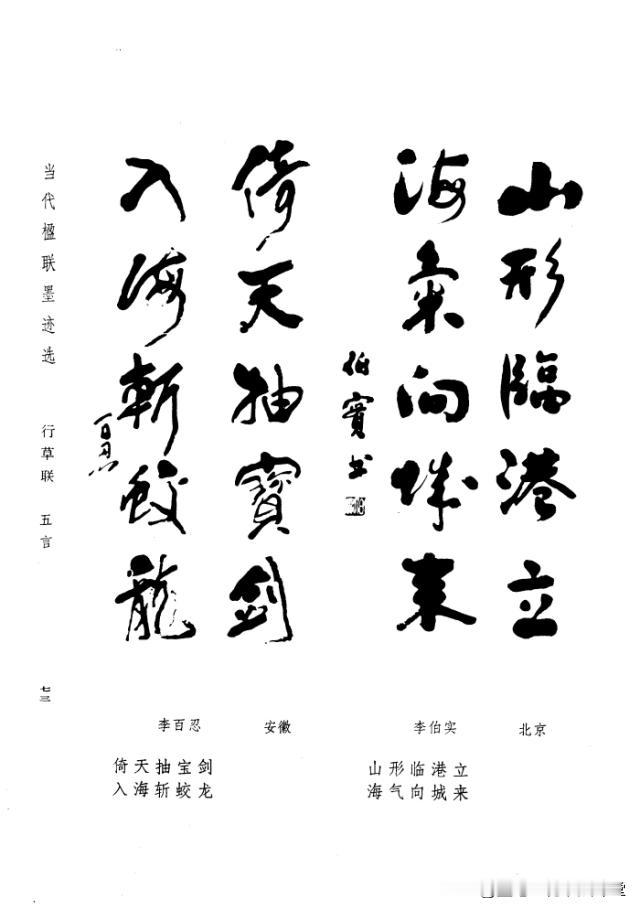 山形臨港立
海氣向城来
伯實书
倚天抽寳剑
入海斬蛟龍
百忍
当代楹联墨迹选 行草联 五言
七三
北京 李伯实
安徽 李百忍
山形临港立
海气向城来
倚天抽宝剑
入海斩蛟龙